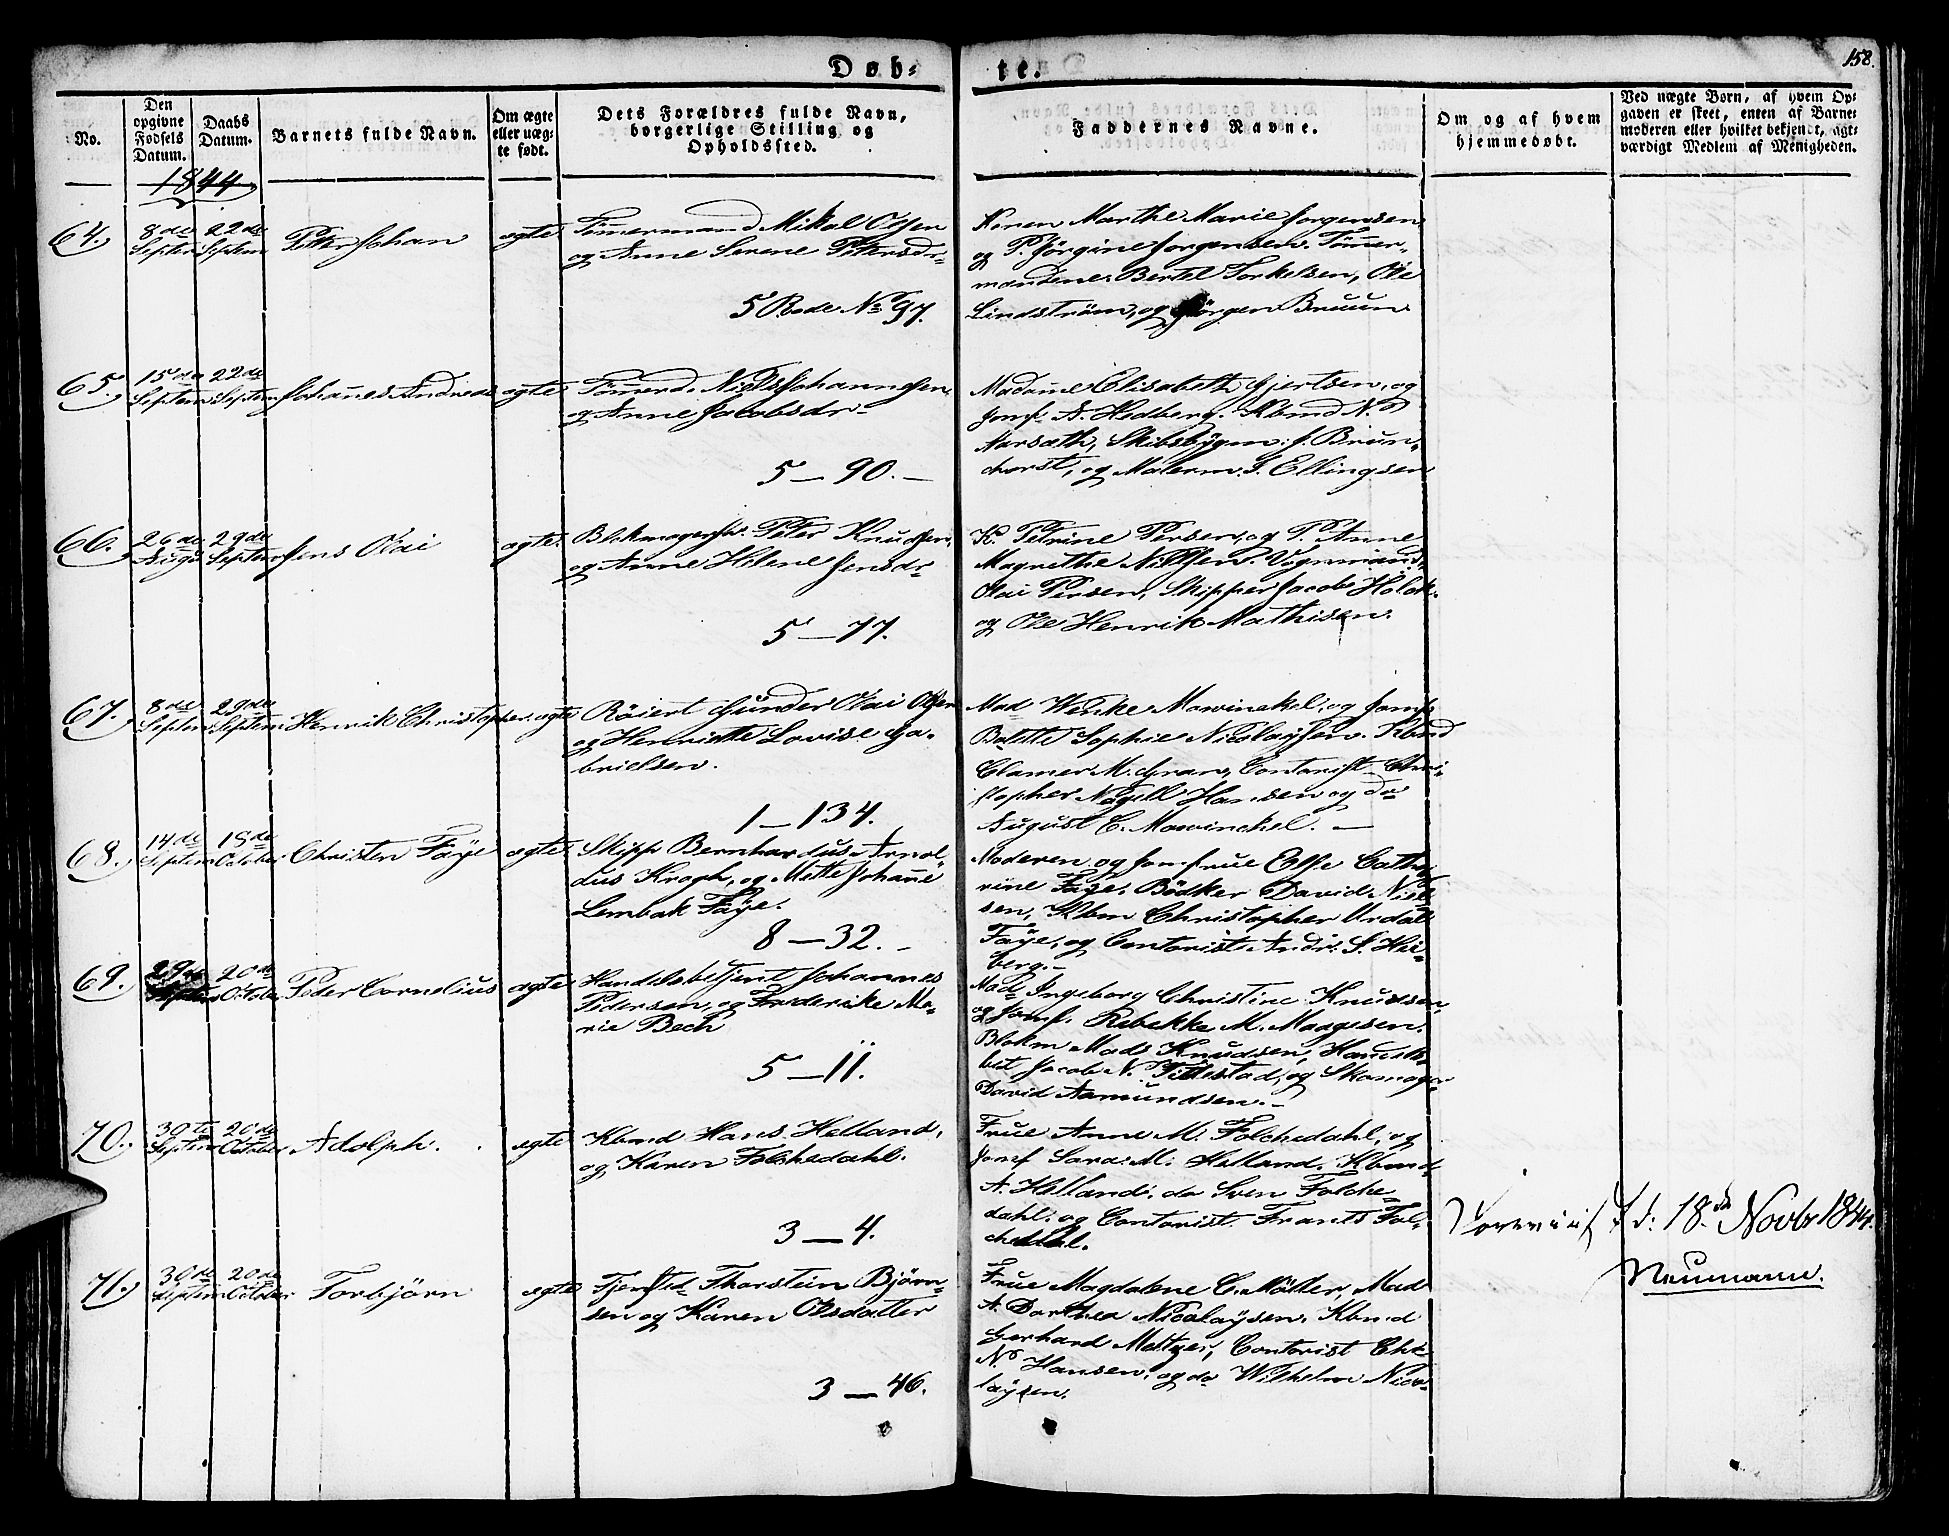 158.
Døb- te.
No.
Den opgivne Fødsels Datum.
Daabs Datum.
Barnets fulde Navn.
Om ægte eller uæg- te født.
Dets Forældres fulde Navn, borgerlige Stilling og Opholdssted.
Faddernes Navne.
Om og af hvem hjemmedøbt.
Ved uægte Børn, af hvem Op- gaven er skeet, enten af Barne- moderen eller hvilket bekjendt, agt- værdigt Medlem af Menigheden.
1844
64. 8de Septem 22de Septem Peter Johan ægte
Tömermand Mikal Olsen
og Anne Serene Petersdr.
5 Rode No 97.
Karen Marthe Marie Jorgensen
og P. Jörgine Jorgensen. Tömer-
mændene Bertel Torkelsen, Ole
Lindström, og Jörgen Bruun
65. 15de Septem 22de Septem Johanes Andreas ægte
Tömerd. Niels Johannesen
og Anne Jacobsdr.
5 — 90. —
Madame Elisabeth Gjertsen, og
Jomf A. Hedberg. Kbmd N.
Aarsæth, Skibsbygm: J. Brun-
chorst, og Malerm. S. Ellingsen
66. 26de Augu 29de Septem Jens Olai ægte
Blokmagersv. Peter Knudsen,
og Anne Helene Jensdr.
5 — 77.
K. Petrine Persen, og P. Anne
Magrethe Nielsen. Vognmand
Olai Persen, Skipper Jacob Holck.
og Ole Henrik Mathisen.
67. 8de Septem 29de Septem Henrik Christopher ægte
Röiert Günder Olai Olsen
og Henriette Lovise Ga-
brielsen.
1 — 134.
Mad Wenke Mowinckel, og Jomf
Bolette Sophie Nicolaysen. Kbmd
Clamer M. Gran, Contorist Chri-
stopher Nagell Hansen og do
August C. Mowinckel. —
68. 14de Septem 18de October Christen Faÿe ægte
Skipp Bernhardus Arnol-
dus Krogh, og Mette Johane
Lembak Faÿe.
8 — 32. —
Moderen og Jomfrue Else Cathe-
rine Faye. Bödker David Niel-
sen, Kbm Christopher Urdal
Faÿe, og Contorist Andr. S. Hei-
berg.—
69. 29de Septem 20de October Peder Cornelius ægte
Handelsbetjent Johannes
Pedersen, og Frederikke Ma-
rie Bech
5 — 11.
Mad Ingeborg Christine Knudsen,
og Jomf. Rebekke M. Maagesen.
Blokm Mads Knudsen, Handels
bet Jacob N. Tillestad, og Skomager
David Aamundsen.—
70. 30te Septem 20de October Adolph. ægte
Kbmd Hans Helland,
og Karen Folchedahl.
3 — 4.
Frue Anne M. Folchedahl, og
Jomf Sara M. Helland. Kbmd
A. Helland. do Sven Folche-
dahl. og Contorist Frants Fol-
chedahl.
d: 18de Novbr 1844.
Neumann.
71. 30de Septem 20de October Torbjörn ægte
Tjenstd Thorstein Björn-
sen og Karen Olsdatter
3 — 46.
Frue Magdalene C. Möller, Mad
A. Dorthea Nicolaÿsen. Kbmd
Gerhard Meltzer, Contorist Chr.
N. Hansen, og do Wilhelm Nico-
laÿsen.